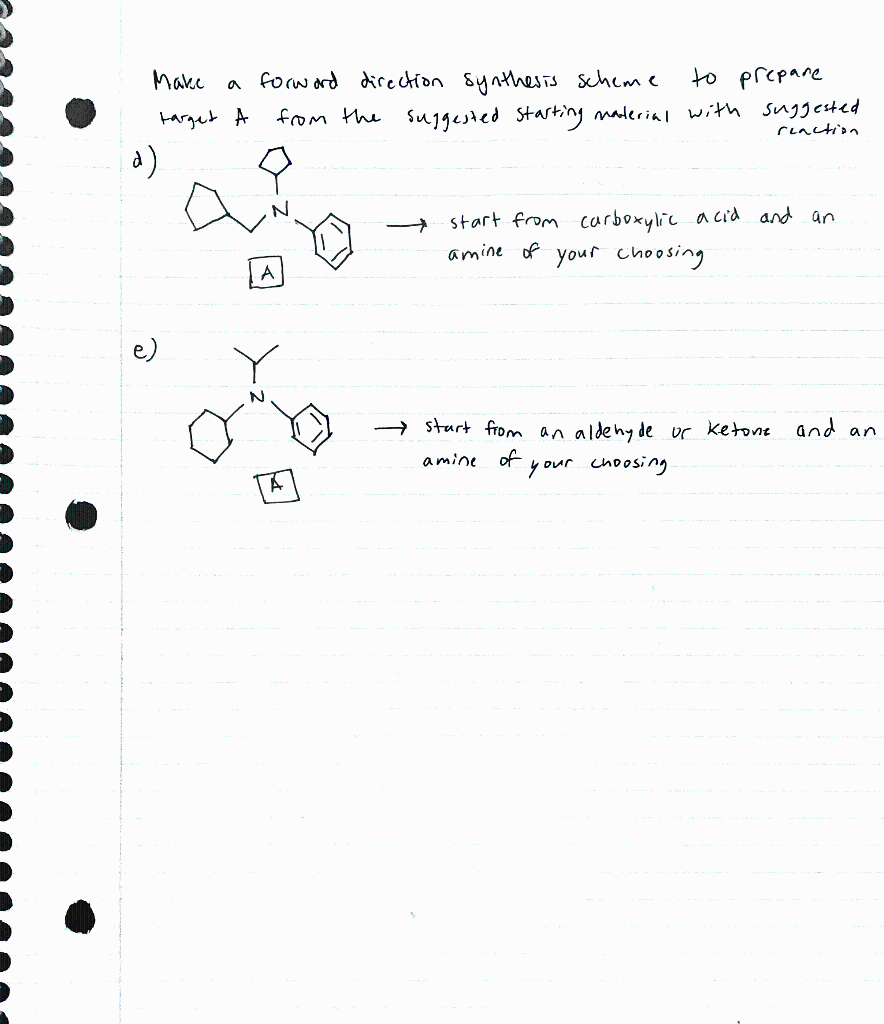 Make a forward direction synthesis scheme to prepare
target A from the suggested starting material with suggested
reaction
d)
N
→ start from carboxylic acid and an
amine of your choosing
A
e)
N
→ start from an aldehyde or ketone and an
amine of your choosing
A